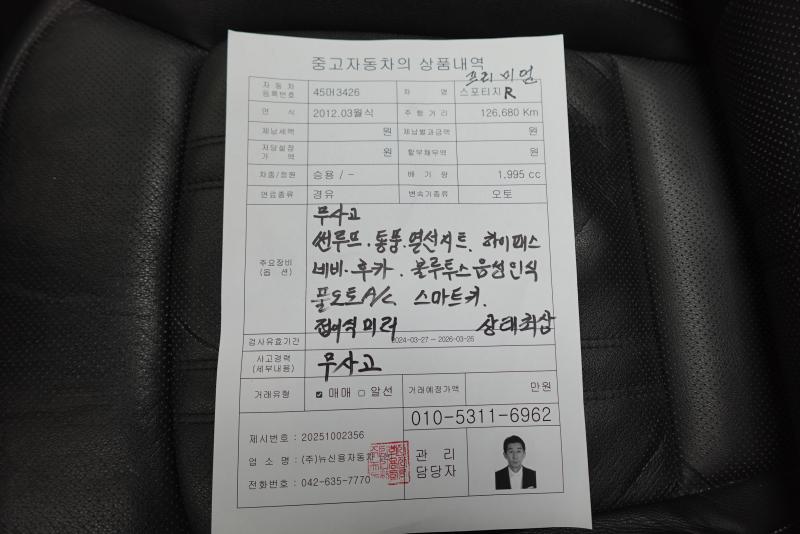 중고자동차의 상품내역
자동차 등록번호 45어3426 차 명 스포티지 R 프리미엄
연 식 2012.03월식 주행거리 126,680 Km
체납세액 원 체납벌과금액 원
저당설정 가 액 원 할부채무액 원
차종/정원 승용 / - 배 기 량 1,995 cc
연료종류 경유 변속기종류 오토
주요장비 (옵 션)
무사고
썬루프.통풍.열선시트. 하이패스
네비.후카. 블루투스음성인식
풀오토A/C 스마트키.
접이식미러 상태최상
검사유효기간 2024-03-27 ~ 2026-03-26
사고경력 (세부내용) 무사고
거래유형 매매 알선 거래예정가액 만원
010-5311-6962
제시번호 : 20251002356
업 소 명 : (주)뉴신용자동차
전화번호 : 042-635-7770
관 리
담당자